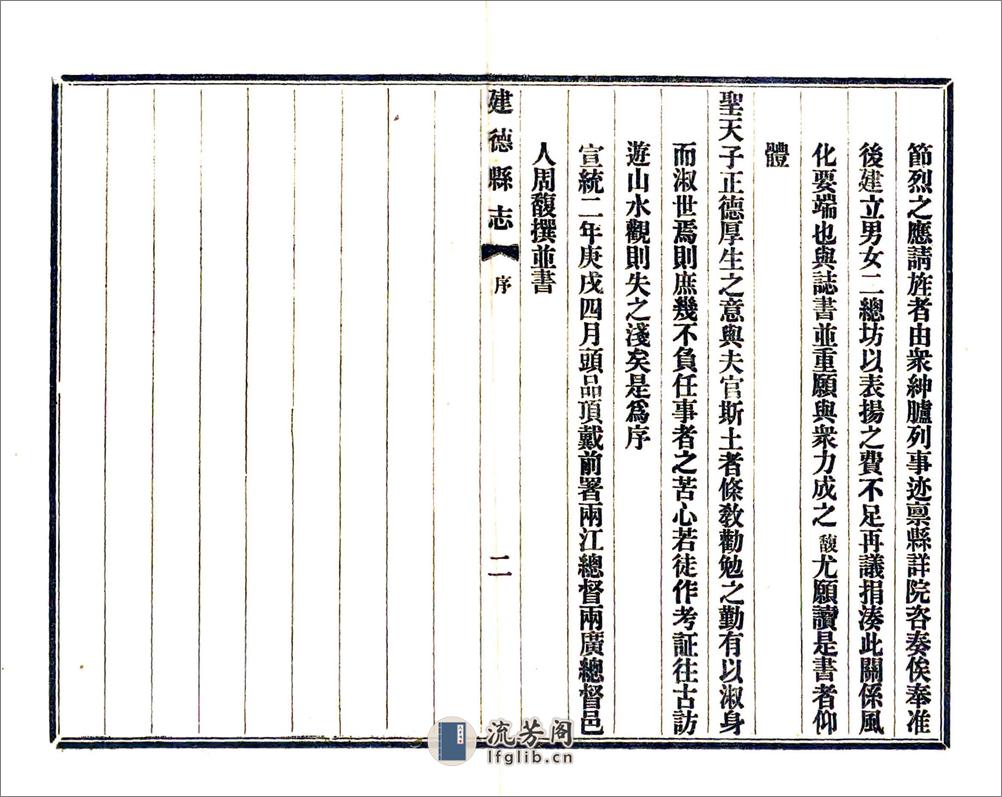 節烈之應請旌者由衆紳臚列事迹禀縣詳院咨奏俟奉准
後建立男女二總坊以表揚之費不足再議捐湊此關係風
化要端也與誌書並重願與衆力成之馥尤願讀是書者仰
體
聖天子正德厚生之意與夫官斯土者條敎勸勉之勤有以淑身
而淑世焉則庶幾不負任事者之苦心若徒作考証往古訪
遊山水觀則失之淺矣是爲序
宣統二年庚戌四月頭品頂戴前署兩江總督兩廣總督邑
人周馥撰並書
建德縣志 序 二
流芳阁
lfglib.cn